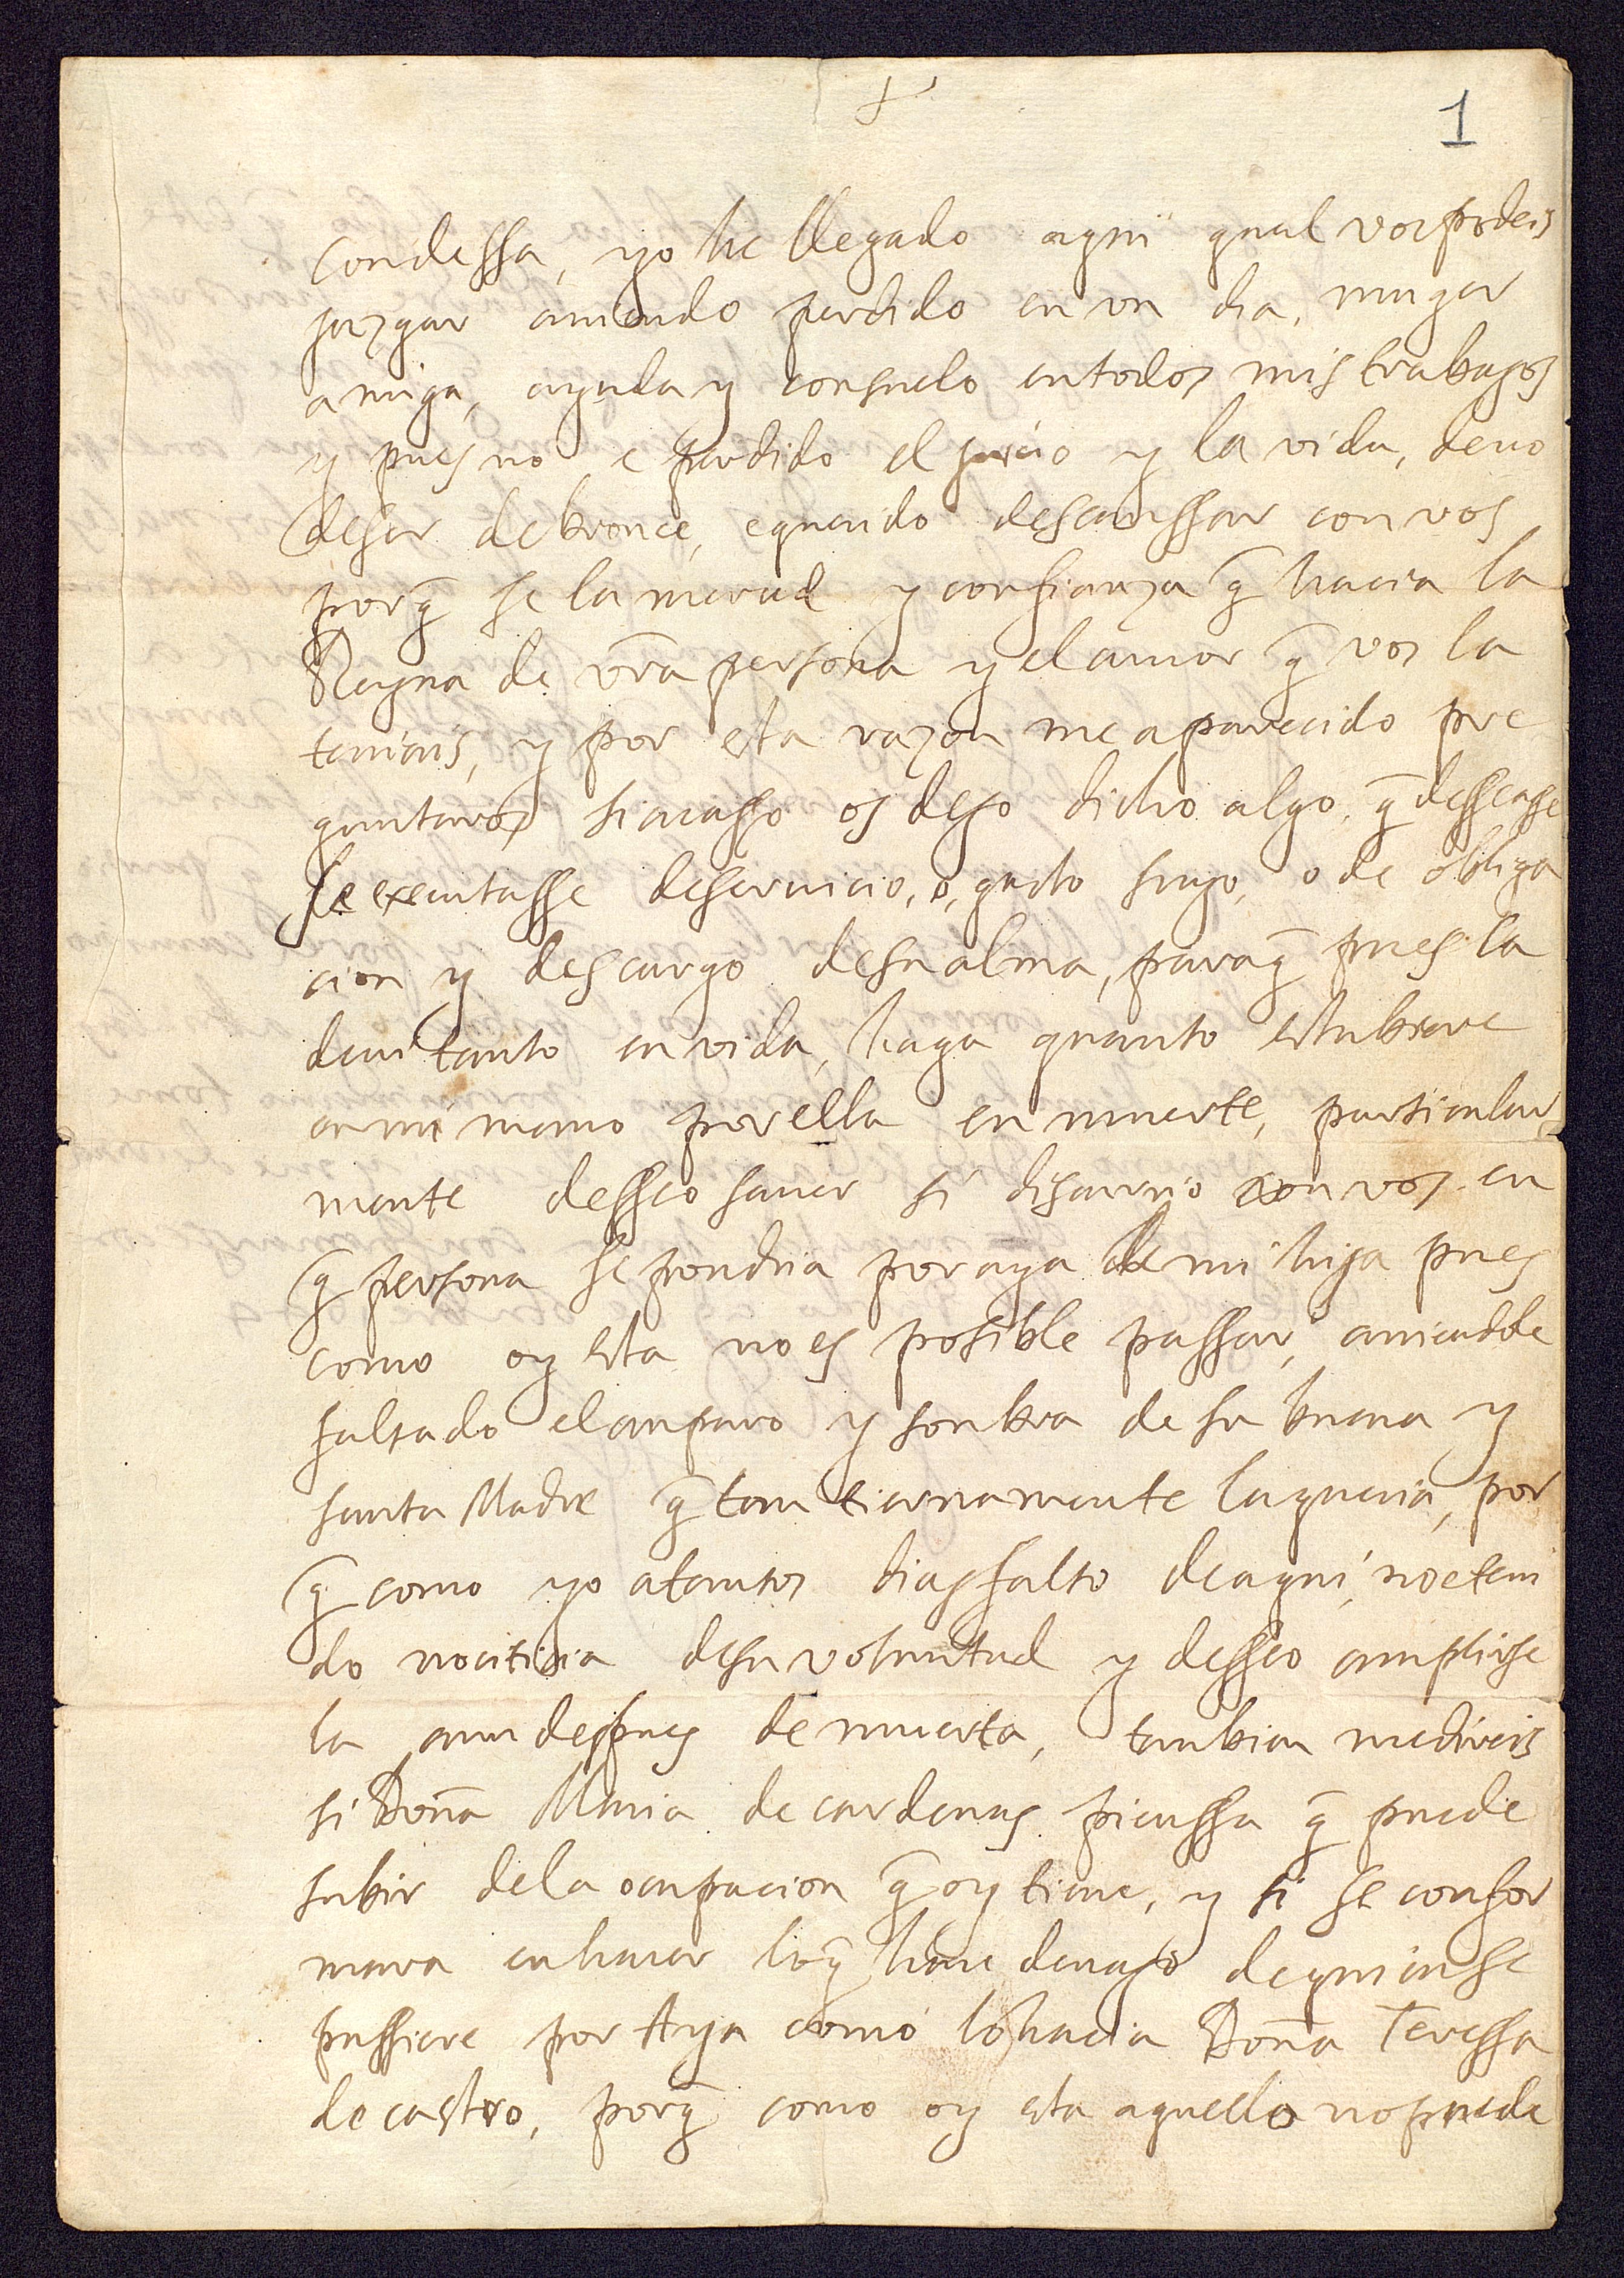 +
1
Condessa, yo he llegado aqui qual vos podeis
juzgar auiendo perdido en vn dia, muger
amiga, ayuda y consuelo en todos mis trabajos
y pues no e perdido el juicio y la vida, deuo
de ser de bronce, e querido descanssar con vos
porq̄ se la merced y confianza q̄ hacia la
Reyna de vr̄a persona y el amor q̄ vos la
teniais, y por esta razon me a parecido pre
guntaros si acasso os dejo dicho algo, q̄ desseasse
se executasse de seruicio, o, gusto suyo, o de obliga
cion y descargo de su alma, para q̄ pues la
deui tanto en vida, haga quanto estubiere
en mi mano por ella en muerte, particular-
mente desseo sauer si discurrio con vos en
q̄ persona se pondria por aya de mi hija pues
como oy esta no es posible passar, auiendole
faltado el anparo y sonbra de su buena y
santa Madre q̄ tan tiernamente la queria, por
q̄ como yo a tantos dias falto de aqui, no e teni
do noticia de su voluntad y desseo cunplirse
la aun despues de muerta, tanbien me direis
si Doña Maria de cardenas pienssa q̄ puede
subir de la ocupacion q̄ oy tiene, y si se confor
mara en hacer lo q̄ hace deuajo de quien se
pussiere por Aya como lo hacia Doña Teressa
de castro, porq̄ como oy esta aquello no puede